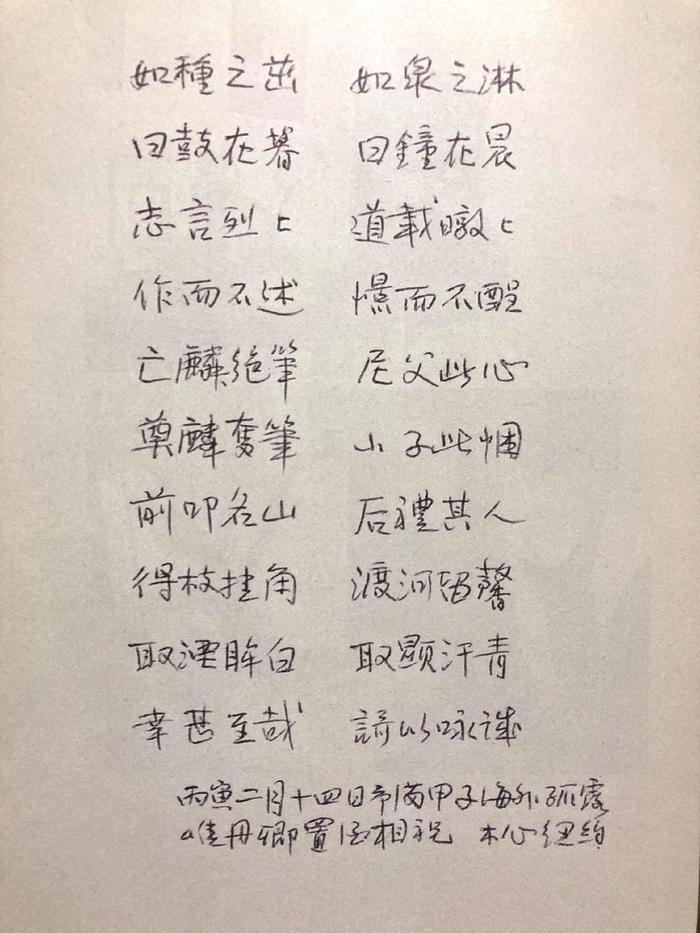 如種之茁 如泉之淋
曰鼓在暮 曰鐘在晨
志言列上 道載暾上
作而不述 憬而不酲
亡麟絕筆 尼父此心
奠麟奮筆 小子此悃
前叩名山 后禮其人
得枝挂角 渡河留馨
取湮眸白 取顯汗青
幸甚至哉 謌以咏誠
丙寅二月十四日予滿甲子海外孤露
唯丹卿置酒相祝 木心紐約